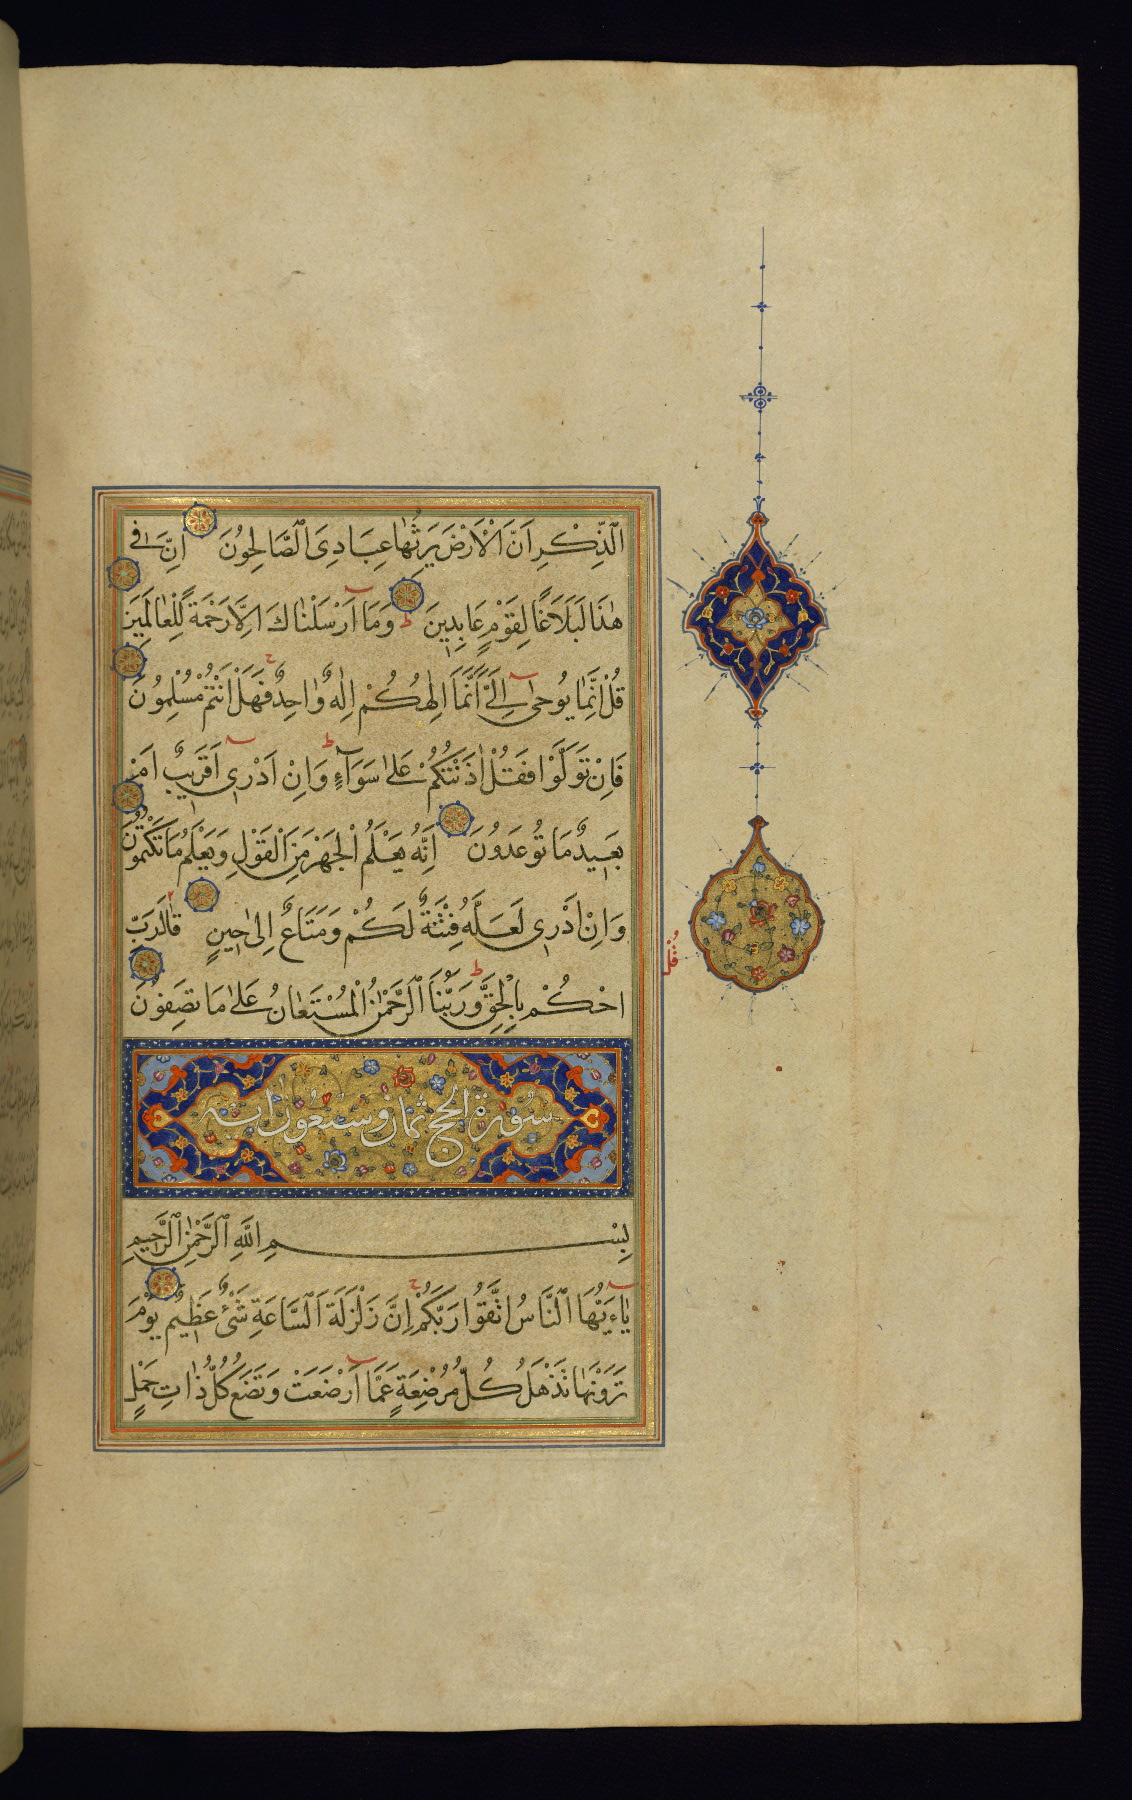 ٱلذِّكْرِ اَنَّ ٱلْاَرْضَ يَرِثُهَا عِبَادِىَ ٱلصَّالِحُونَ اِنَّ فٖى
هٰذَا لَبَلَاغًا لِقَوْمٍ عَابِدٖينَ وَمَآ اَرْسَلْنَاكَ اِلَّا رَحْمَةً لِلْعَالَمٖينَ
قُلْ اِنَّمَا يُوحٰٓى اِلَىَّ اَنَّمَآ اِلٰهُكُمْ اِلٰهٌ وَاحِدٌ فَهَلْ اَنْتُمْ مُسْلِمُونَ
فَاِنْ تَوَلَّوْا فَقُلْ اٰذَنْتُكُمْ عَلٰى سَوَآءٍ وَاِنْ اَدْرٖٓى اَقَرٖيبٌ اَمْ
بَعٖيدٌ مَا تُوعَدُونَ اِنَّهُ يَعْلَمُ ٱلْجَهْرَ مِنَ ٱلْقَوْلِ وَيَعْلَمُ مَا تَكْتُمُونَ
وَاِنْ اَدْرٖى لَعَلَّهُ فِتْنَةٌ لَكُمْ وَمَتَاعٌ اِلٰى حٖينٍ قَالَ رَبِّ
احْكُمْ بِالْحَقِّ وَرَبُّنَا ٱلرَّحْمٰنُ ٱلْمُسْتَعَانُ عَلٰى مَا تَصِفُونَ
قُلْ
سورة الحج ثمان وسبعون اية
بِسْمِ اللّٰهِ ٱلرَّحْمٰنِ ٱلرَّحٖيمِ
يَٓاءَيُّهَا ٱلنَّاسُ اتَّقُوا رَبَّكُمْ اِنَّ زَلْزَلَةَ ٱلسَّاعَةِ شَىْءٌ عَظٖيمٌ يَوْمَ
تَرَوْنَهَا تَذْهَلُ كُلُّ مُرْضِعَةٍ عَمَّآ اَرْضَعَتْ وَتَضَعُ كُلُّ ذَاتِ حَمْلٍ